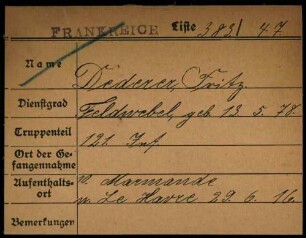 FRANKREICH Liste 383/ 47
Name Dederer, Fritz
Dienstgrad Feldwebel, geb. 13. 5. 78.
Truppenteil 121 Inf.
Ort der Ge-
fangennahme
Aufenthalts- v. Marmande
ort n. Le Havre 29. 6. 16.
Bemerkungen